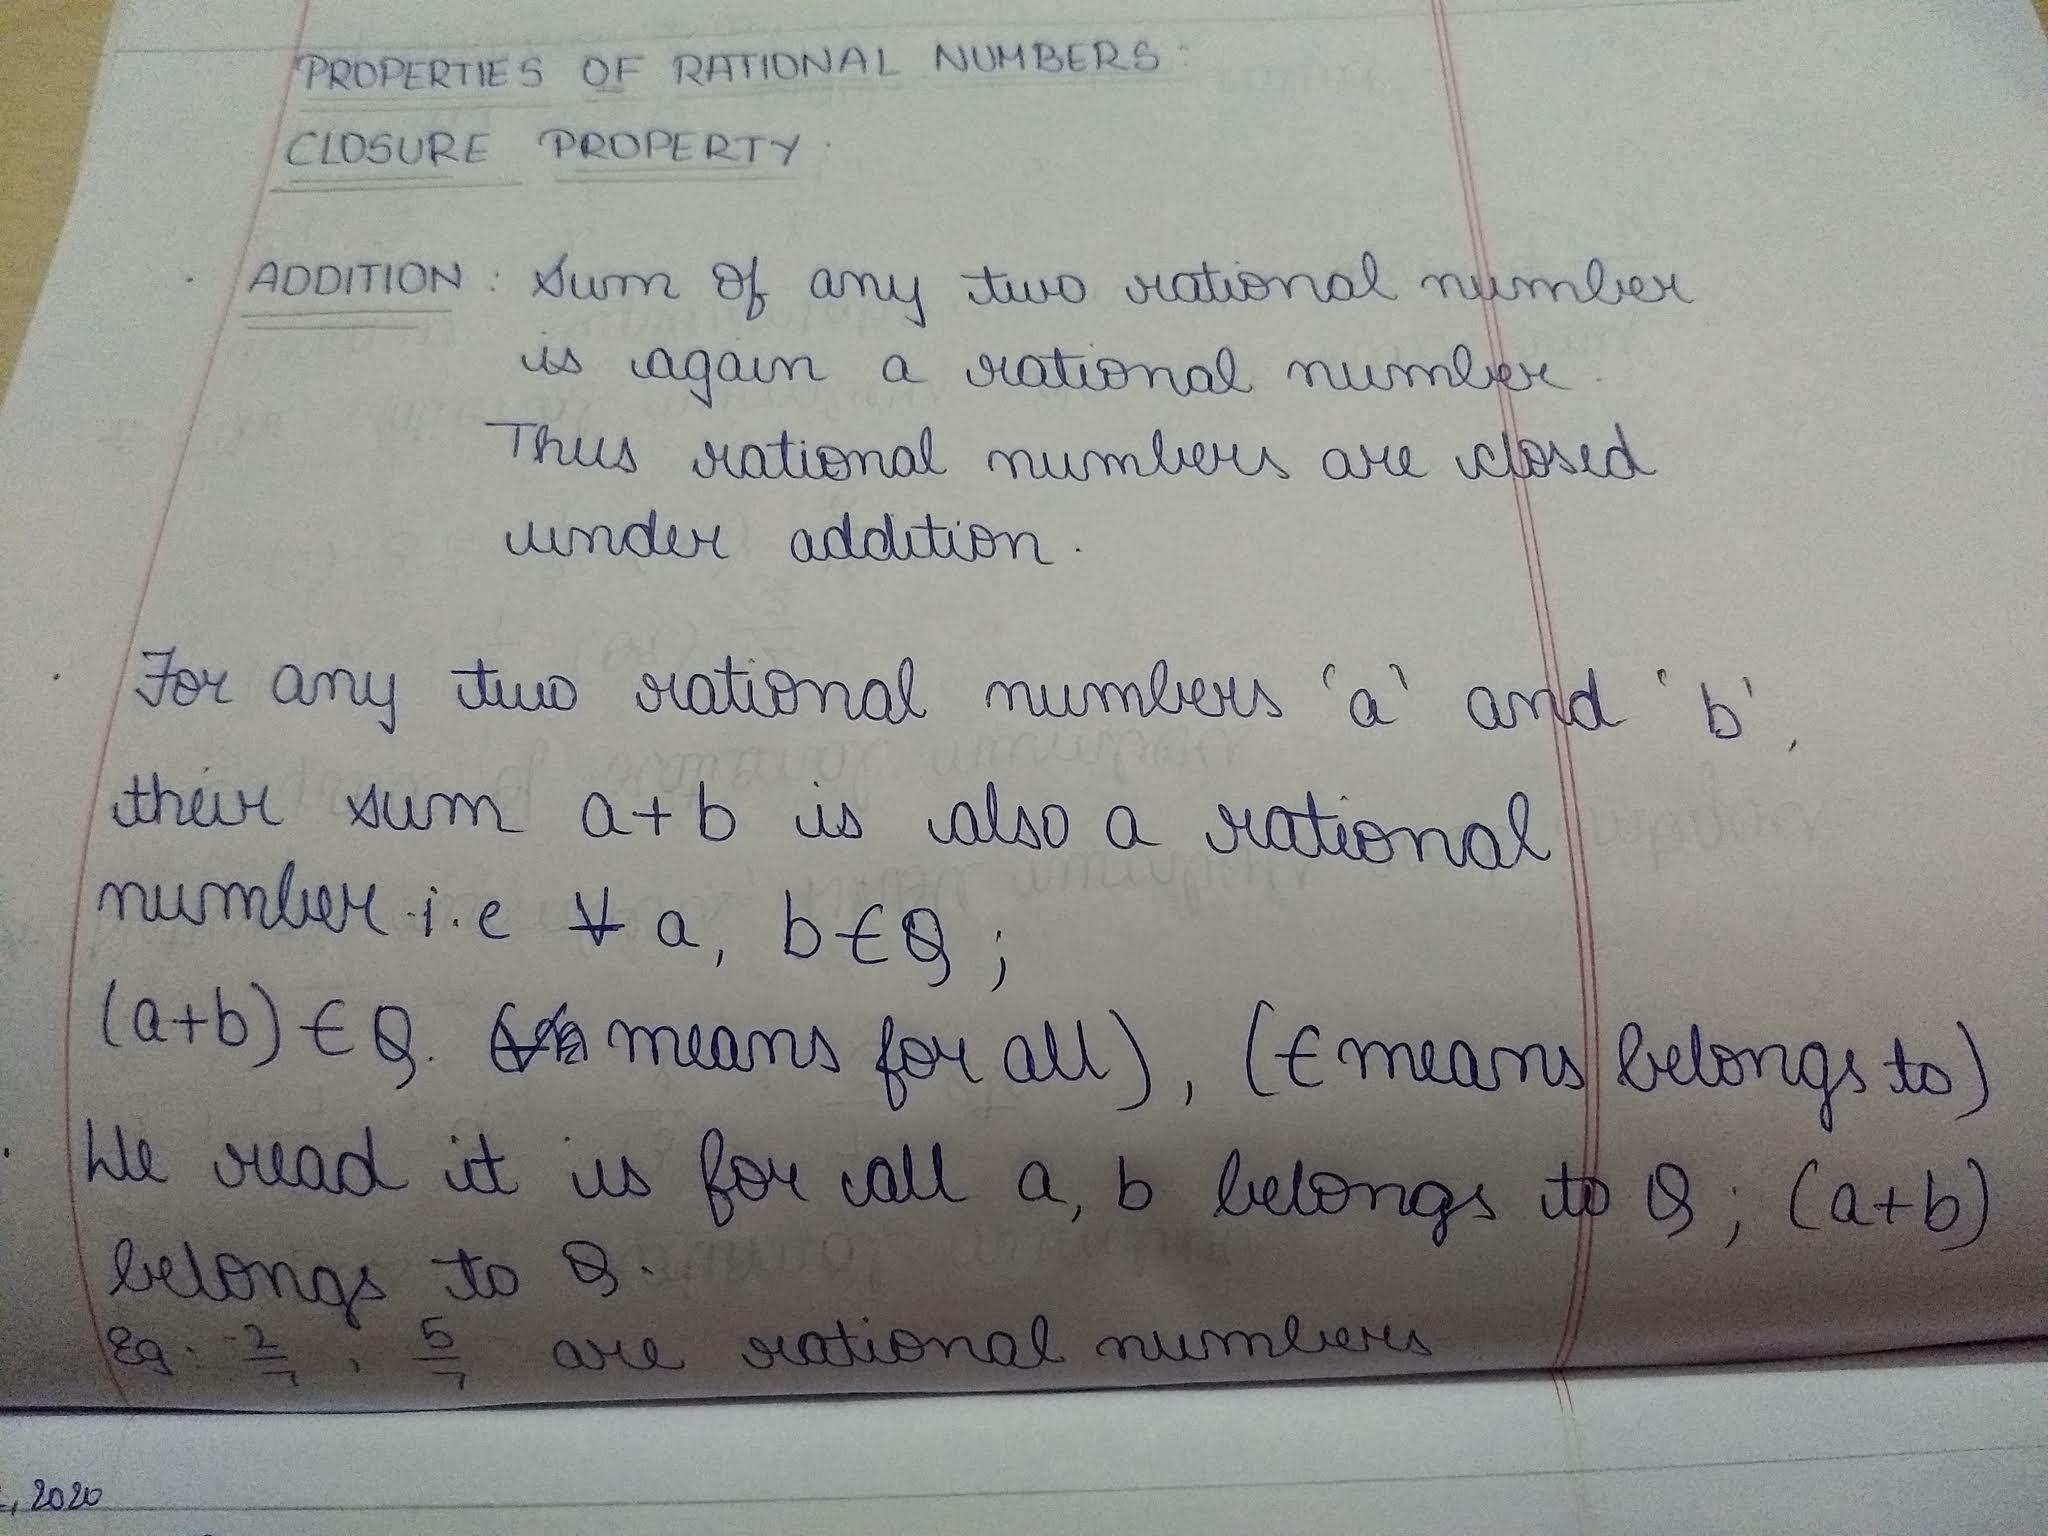 PROPERTIES OF RATIONAL NUMBERS:
CLOSURE PROPERTY.
ADDITION: Sum of any two rational number
is again a rational number.
Thus rational numbers are closed
under addition.
For any two rational numbers 'a' and 'b',
their sum a+b is also a rational
number i.e ∀ a, b ∈ Q;
(a+b) ∈ Q. means for all), (∈ means belongs to)
We read it is for all a, b belongs to Q; (a+b)
belongs to Q.
Eg: -2/7, 5/7 are rational numbers
, 2020